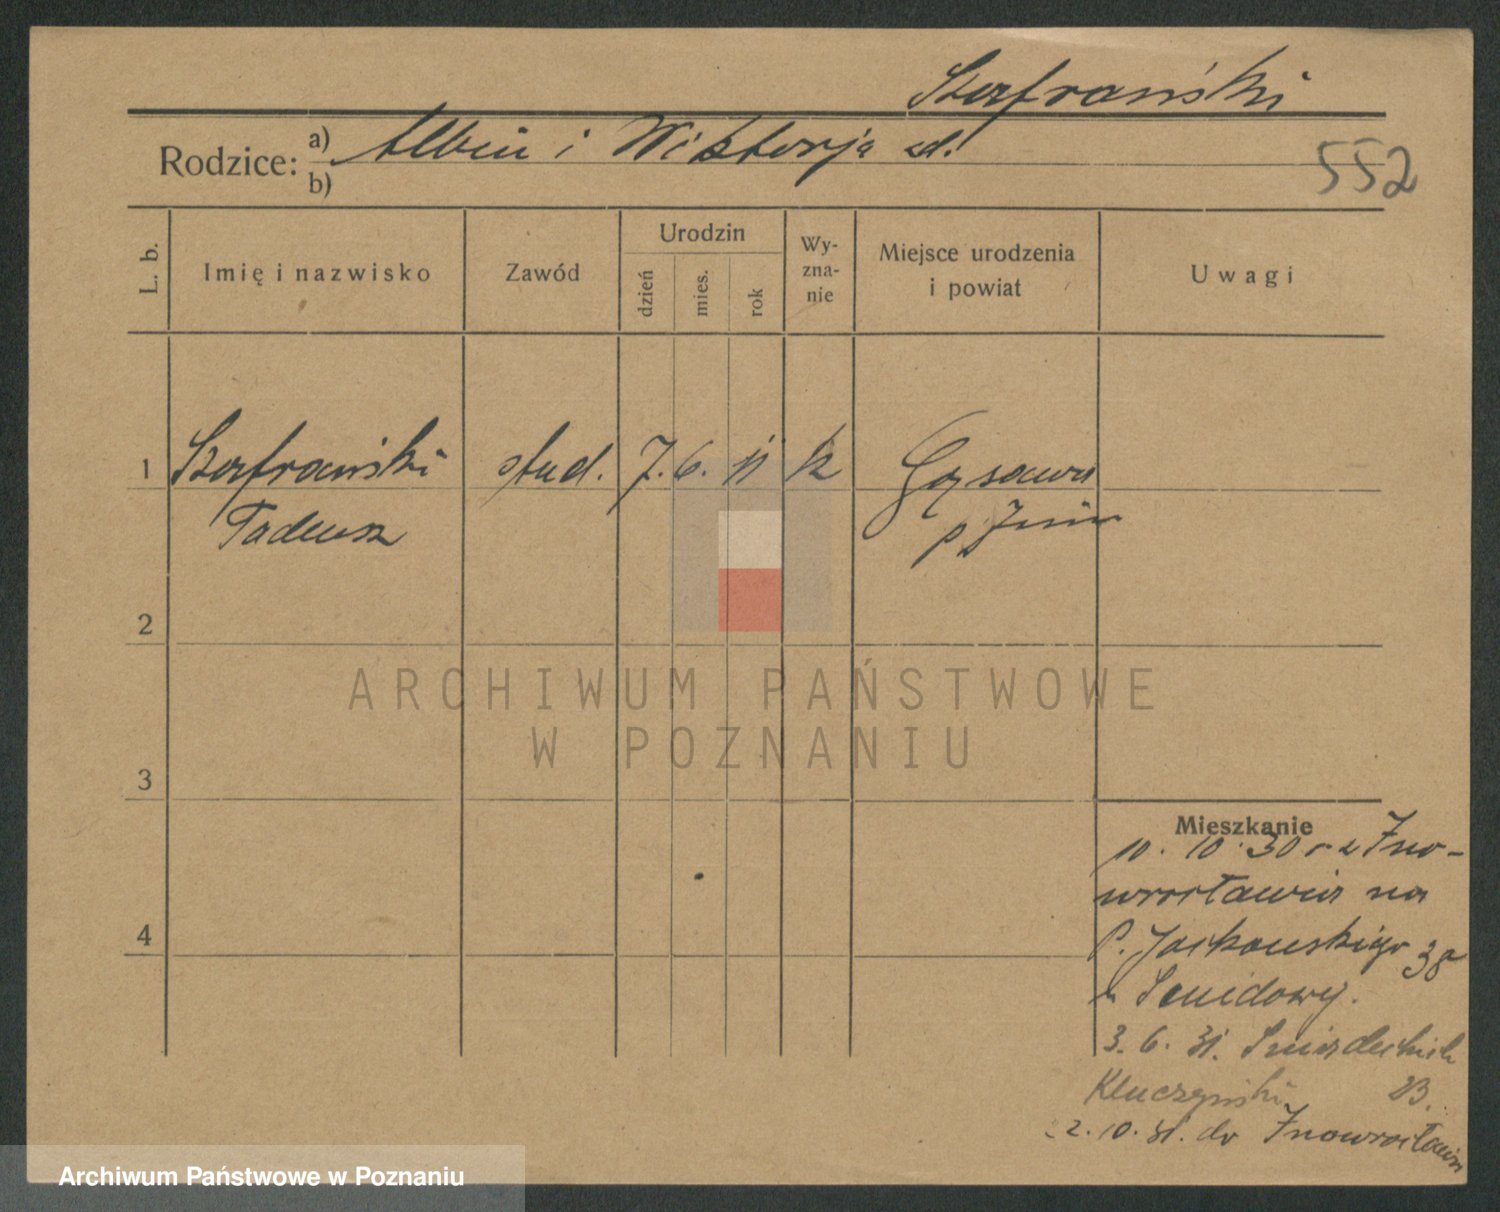 Szafrański
Rodzice: a) Albin i Wiktorja zd.
b)
552
L. b.
Imię i nazwisko
Zawód
Urodzin
dzień
mies.
rok
Wy-
zna-
nie
Miejsce urodzenia
i powiat
Uwagi
1 Szafrański stud. 7. 6. 11 k Gąsawa
Tadeusz p. Żnin
2
ARCHIWUM PAŃSTWOWE
W POZNANIU
3
Mieszkanie
10. 10. 30 r. z Ino-
wrocławia na
P. Jackowskiego 38
3. 6. 31. Śniadeckich
Kluczyński
2. 10. 31. do Inowrocławia
4
Archiwum Państwowe w Poznaniu